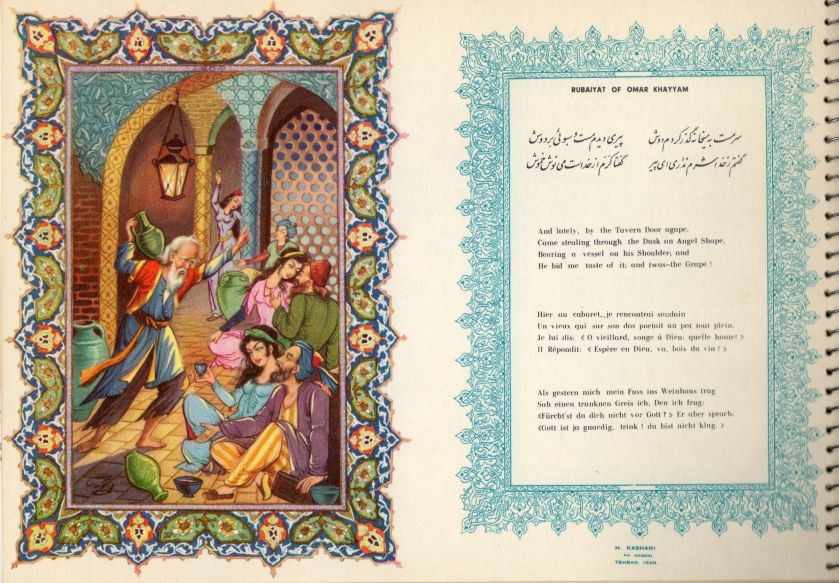 RUBAIYAT OF OMAR KHAYYAM
سرمست به میخانه گذر کردم دوش پیری دیدم مست و سبوئی بر دوش
گفتم ز خدا شرم نداری ای پیر گفتا کرم از خداست می نوش خموش
And lately, by the Tavern Door agape,
Came stealing through the Dusk an Angel Shape,
Bearing a vessel on his Shoulder; and
He bid me taste of it; and twas--the Grape !
Hier au cabaret, je rencontrai soudain
Un vieux qui sur son dos portait un pot tout plein.
Je lui dis: « O vieillard, songe à Dieu: quelle honte! »
Il Répondit: « Espère en Dieu, va, bois du vin ! »
Als gestern mich mein Fuss ins Weinhaus trug
Sah einen trunknen Greis ich, Den ich frug:
«Fürcht'st du dich nicht vor Gott ? » Er aber sprach:
«Gott ist ja gnaedig, trink ! du bist nicht klug. »
H. KASHANI
AV. NADERI
TEHRAN. IRAN